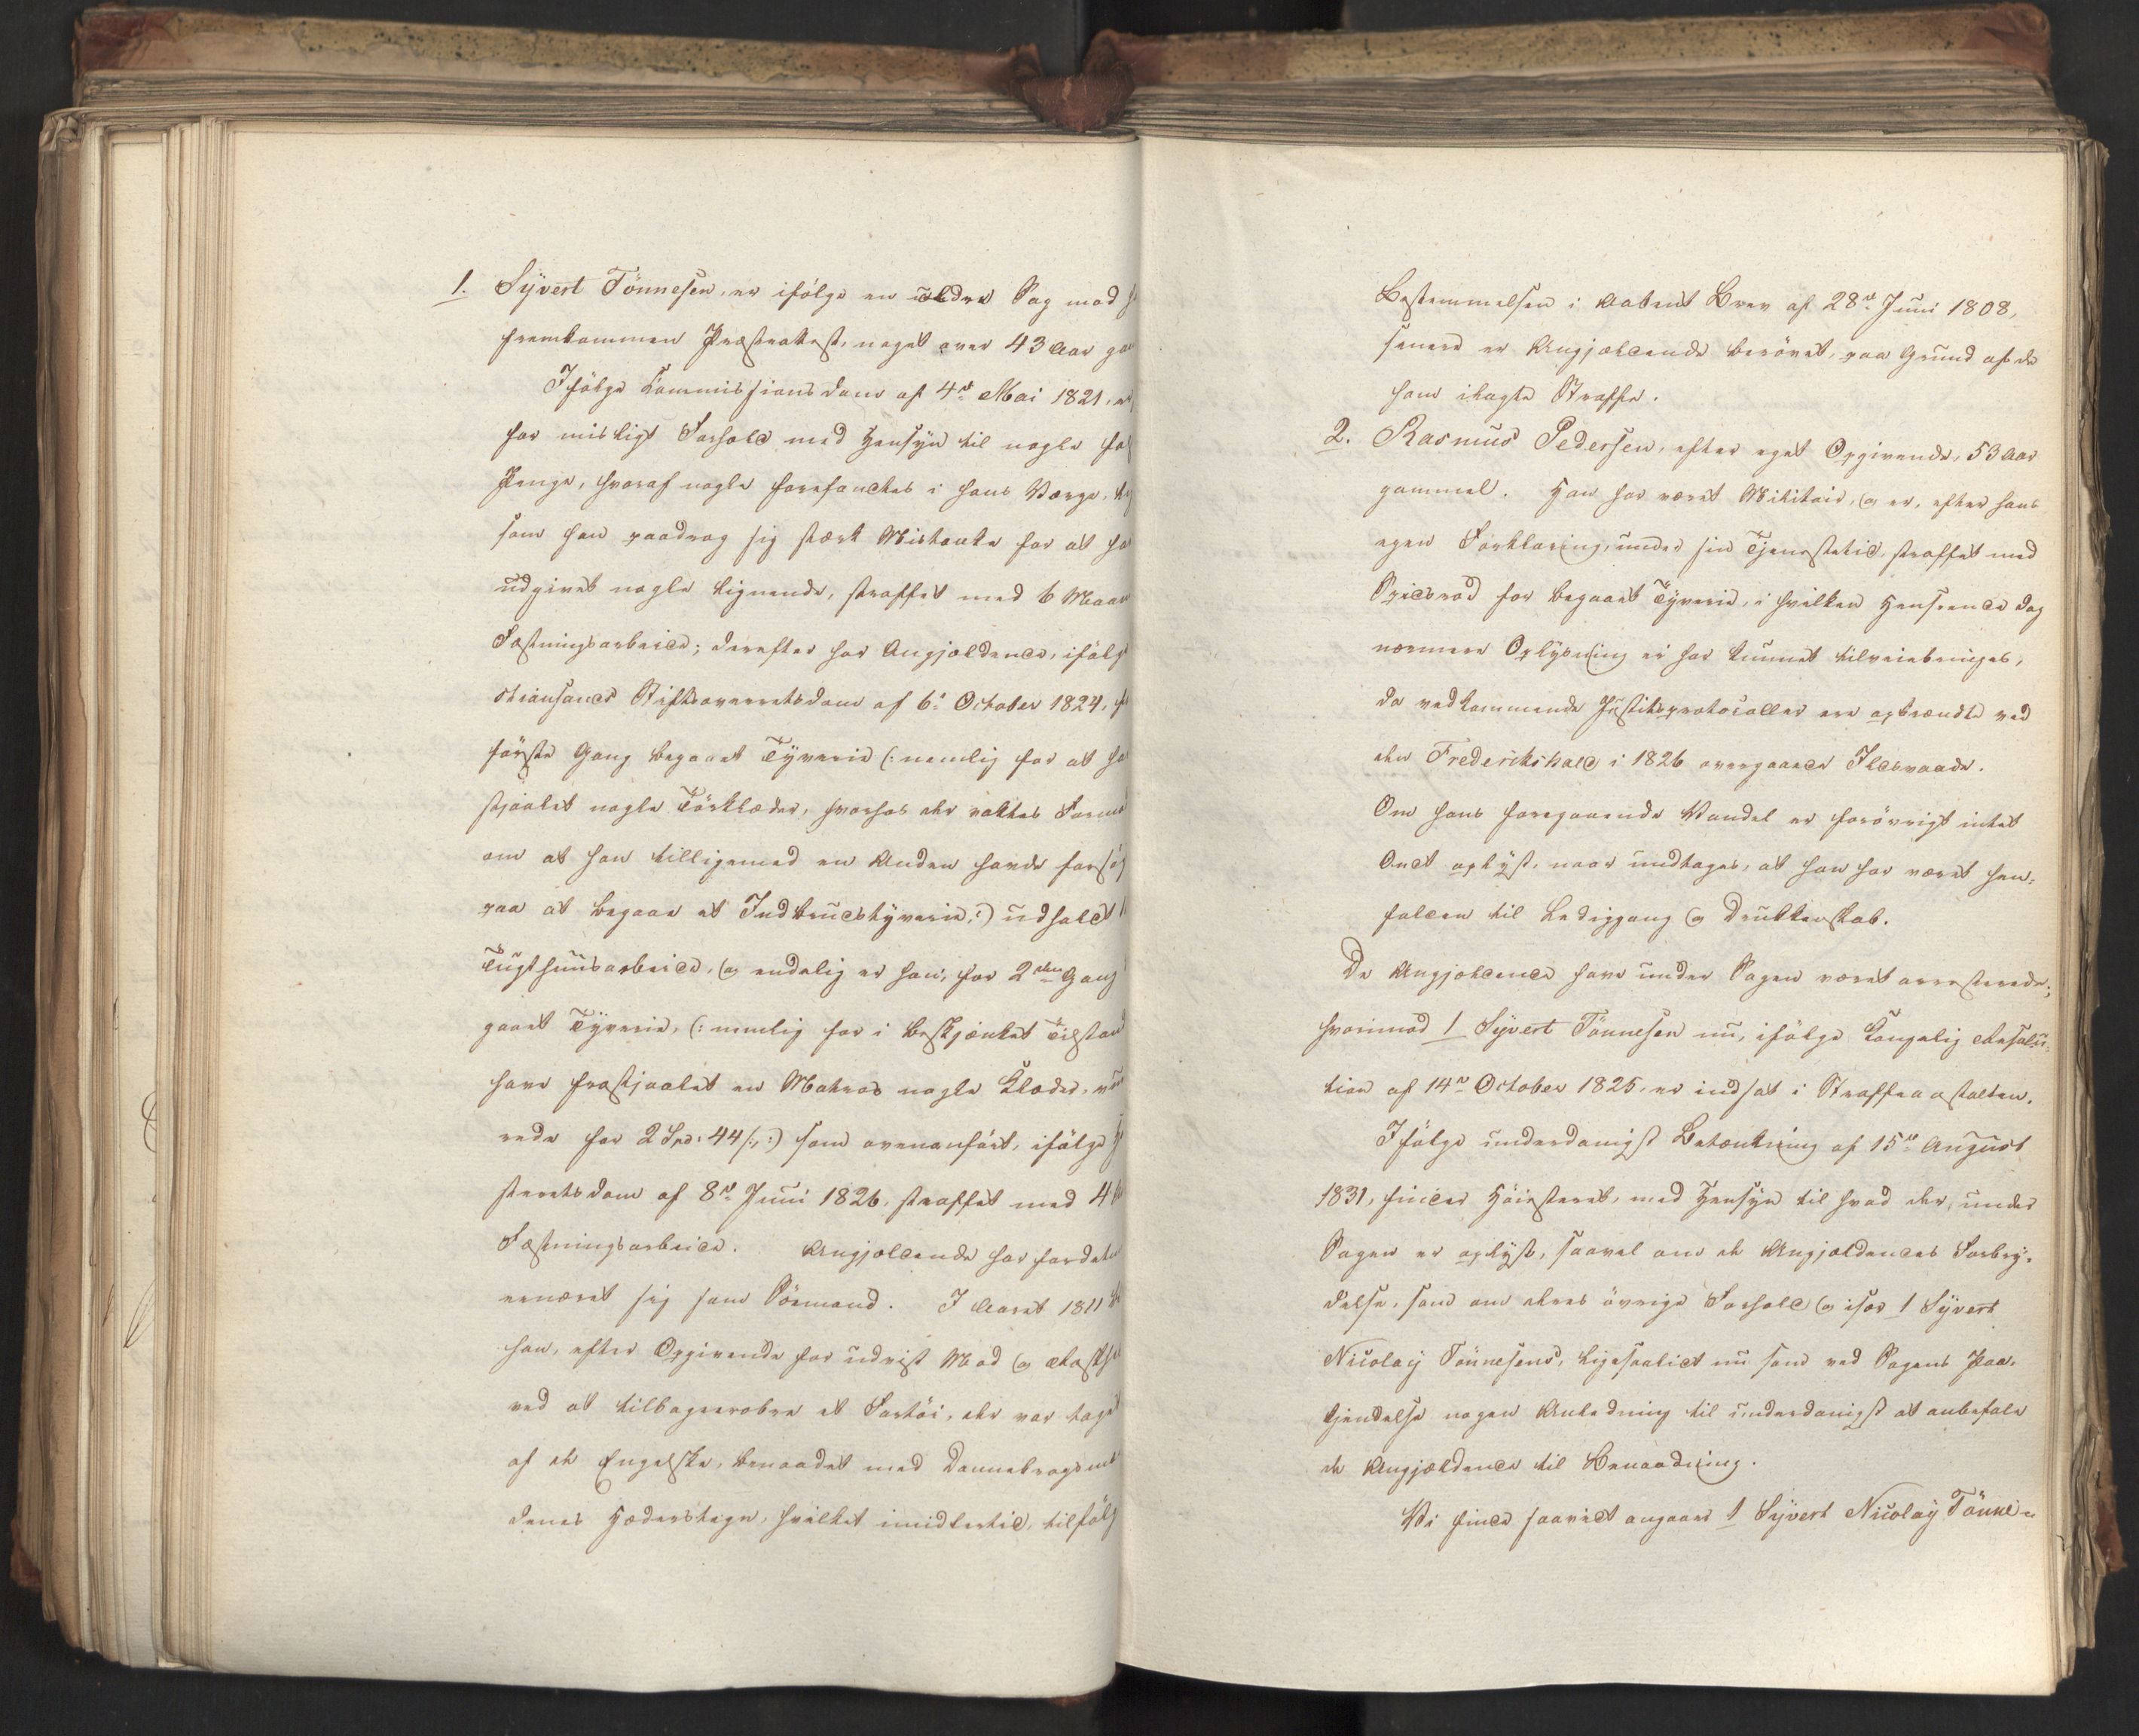 1. Syvert Tönnesen, er ifölge en ældre Sag mod h
fremkommen Præsteattest, noget over 43 Aar ga
Ifölge Commissionsdom af 4de Mai 1821, er
for misligt Forhold med Hensyn til nogle fal
Penge, hvoraf nogle forefandtes i hans Værge, lig
som han paadrog sig stærk Mistanke for at ha
udgivet nogle lignende, straffet med 6 Maan
Fæstningsarbeide; derefter har Angjældende, ifölg
stiansands Stiftsoverretsdom af 6te October 1824, fo
förste Gang begaaet Tyverie (: nemlig for at ha
stjaalet nogle Törklæder, hvorhos der vaktes Formo
om at han tilligemed en Anden havde forsög
paa at begaae et Indbrudstyverie:) udholdt
Tugthuusarbeide, og endelig er han, for 2den Gang
gaaet Tyverie, (: nemlig for i beskjænket Tilstand
have frastjaalet en Matros nogle Klæder, vur
rede for 2 Spd: 44 ß:) som ovenanfört, ifölge H
steretsdom af 8de Juni 1826, straffet med 4
Fæstningsarbeide. Angjældende har fordetm
ernæret sig som Sömand. I Aaret 1811 bl
han, efter Opgivende for udvist Mod og Raskhed
ved at tilbageerobre et Fartöi, der var taget
af de Engelske, benaadet med Dannebrogsmæ
denes Hæderstegn, hvilket imidlertid, tilfölg
Bestemmelsen i Aabent Brev af 28de Juni 1808,
senere er Angjældende berövet, paa Grund af de
ham ilagte Straffe.
2. Rasmus Pedersen, efter eget Opgivende, 53 Aar
gammel. Han har været Militair, og er, efter hans
egen Forklaring, under sin Tjenestetid, straffet med
Spidsrod for begaaet Tyverie, i hvilken Henseende dog
nærmere Oplysning ei har kunnet tilveiebringes,
da vedkommende Justitsprotocoller ere opbrændte ved
den Frederikshald i 1826 overgaaede Ildsvaade.
Om hans foregaaende Vandel er forövrigt intet
Ondt oplyst, naar undtages, at han har været hen-
falden til Lediggang og Drukkenskab.
De Angjældende have under Sagen været arresterede;
hvorimod 1 Syvert Tönnesen nu, ifölge Kongelig Resolu-
tion af 14de October 1825, er indsat i Straffeanstalten.
Ifölge underdanigst Betænkning af 15de August
1831, finder Höiesteret, med Hensyn til hvad der, under
Sagen er oplyst, saavel om de Angjældendes Forbry-
delse, som om deres övrige Forhold og især 1 Syvert
Nicolay Tönnesens, ligesaalidt nu som ved Sagens Paa-
kjendelse nogen Anledning til underdanigst at anbefale
de Angjældende til Benaadning.
Vi finde saavidt angaaer 1 Syvert Nicolay Tönne-